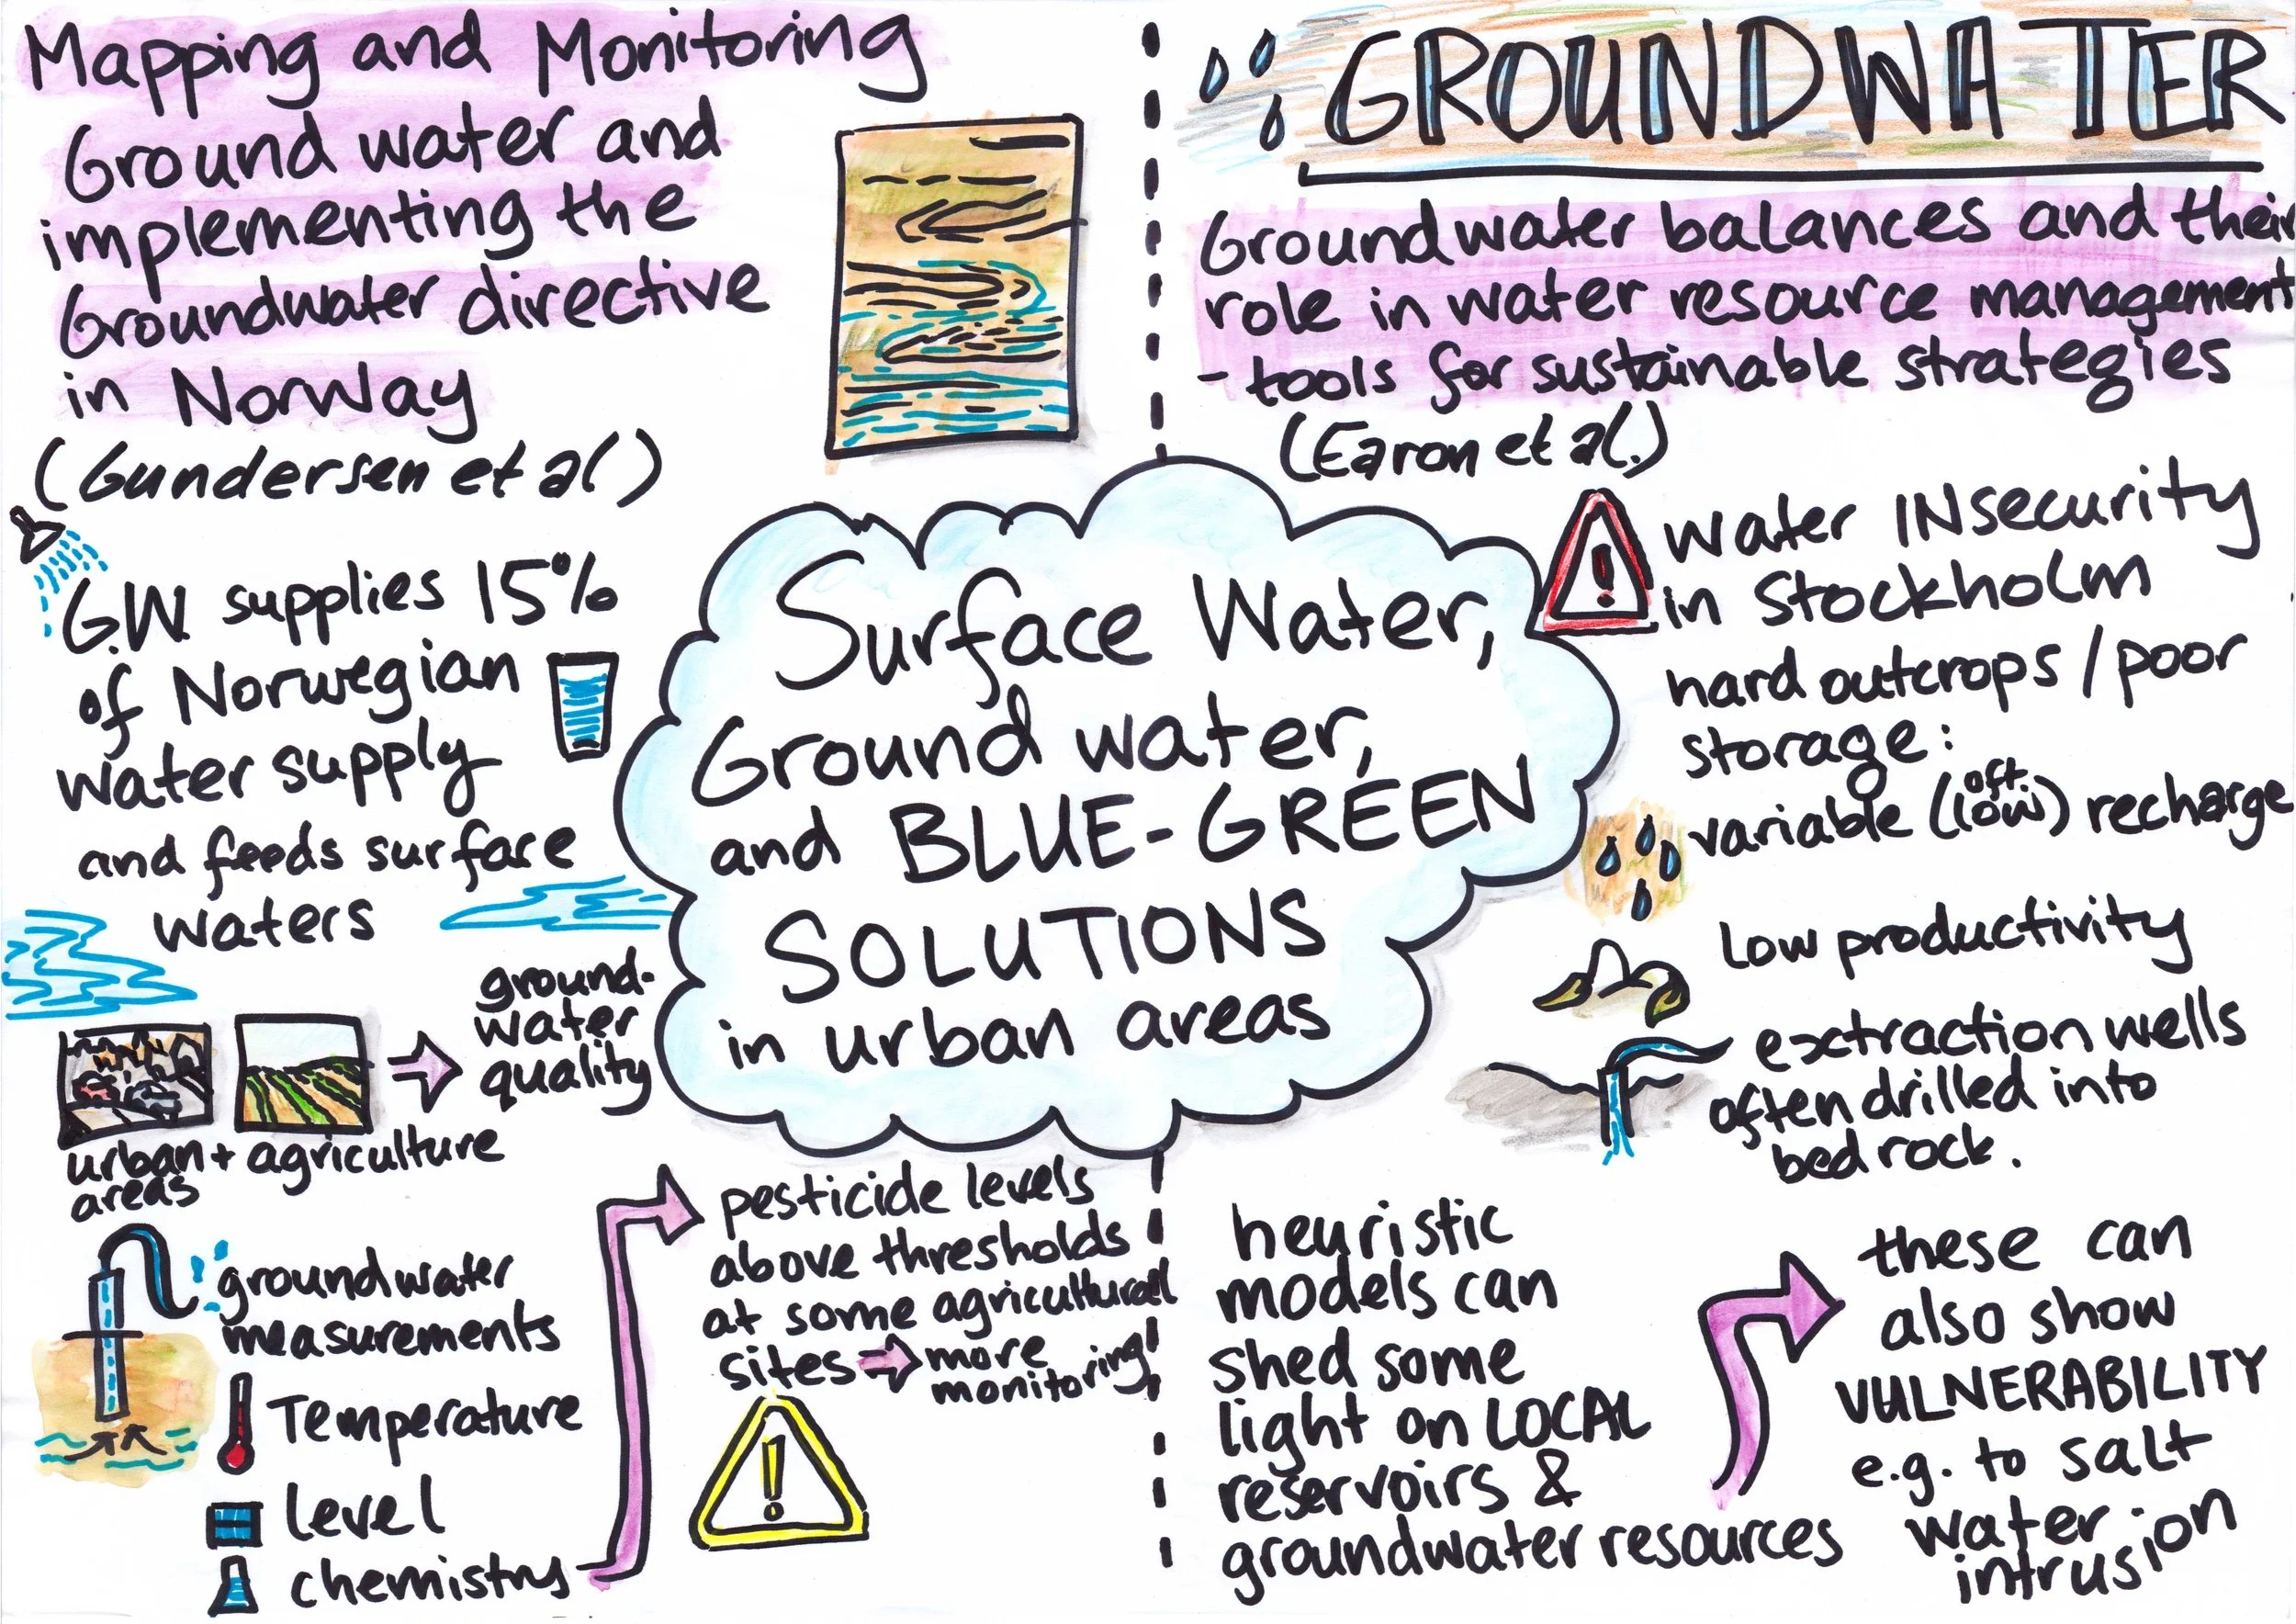 Mapping and Monitoring
Ground water and
implementing the
Groundwater directive
in Norway
(Gundersen et al)
G.W. supplies 15%
of Norwegian
water supply
and feeds surface
waters
ground-
water
quality
urban + agriculture
areas
groundwater
measurements
Temperature
level
chemistry
pesticide levels
above thresholds
at some agricultural
sites → more
monitoring
Surface Water,
Ground water,
and BLUE-GREEN
SOLUTIONS
in urban areas
GROUNDWATER
Groundwater balances and their
role in water resource management
- tools for sustainable strategies
(Earon et al.)
water INsecurity
in Stockholm
hard outcrops / poor
storage:
variable (oft. low) recharge
low productivity
extraction wells
often drilled into
bedrock.
heuristic
models can
shed some
light on LOCAL
reservoirs &
groundwater resources
these can
also show
VULNERABILITY
e.g. to salt
water
intrusion